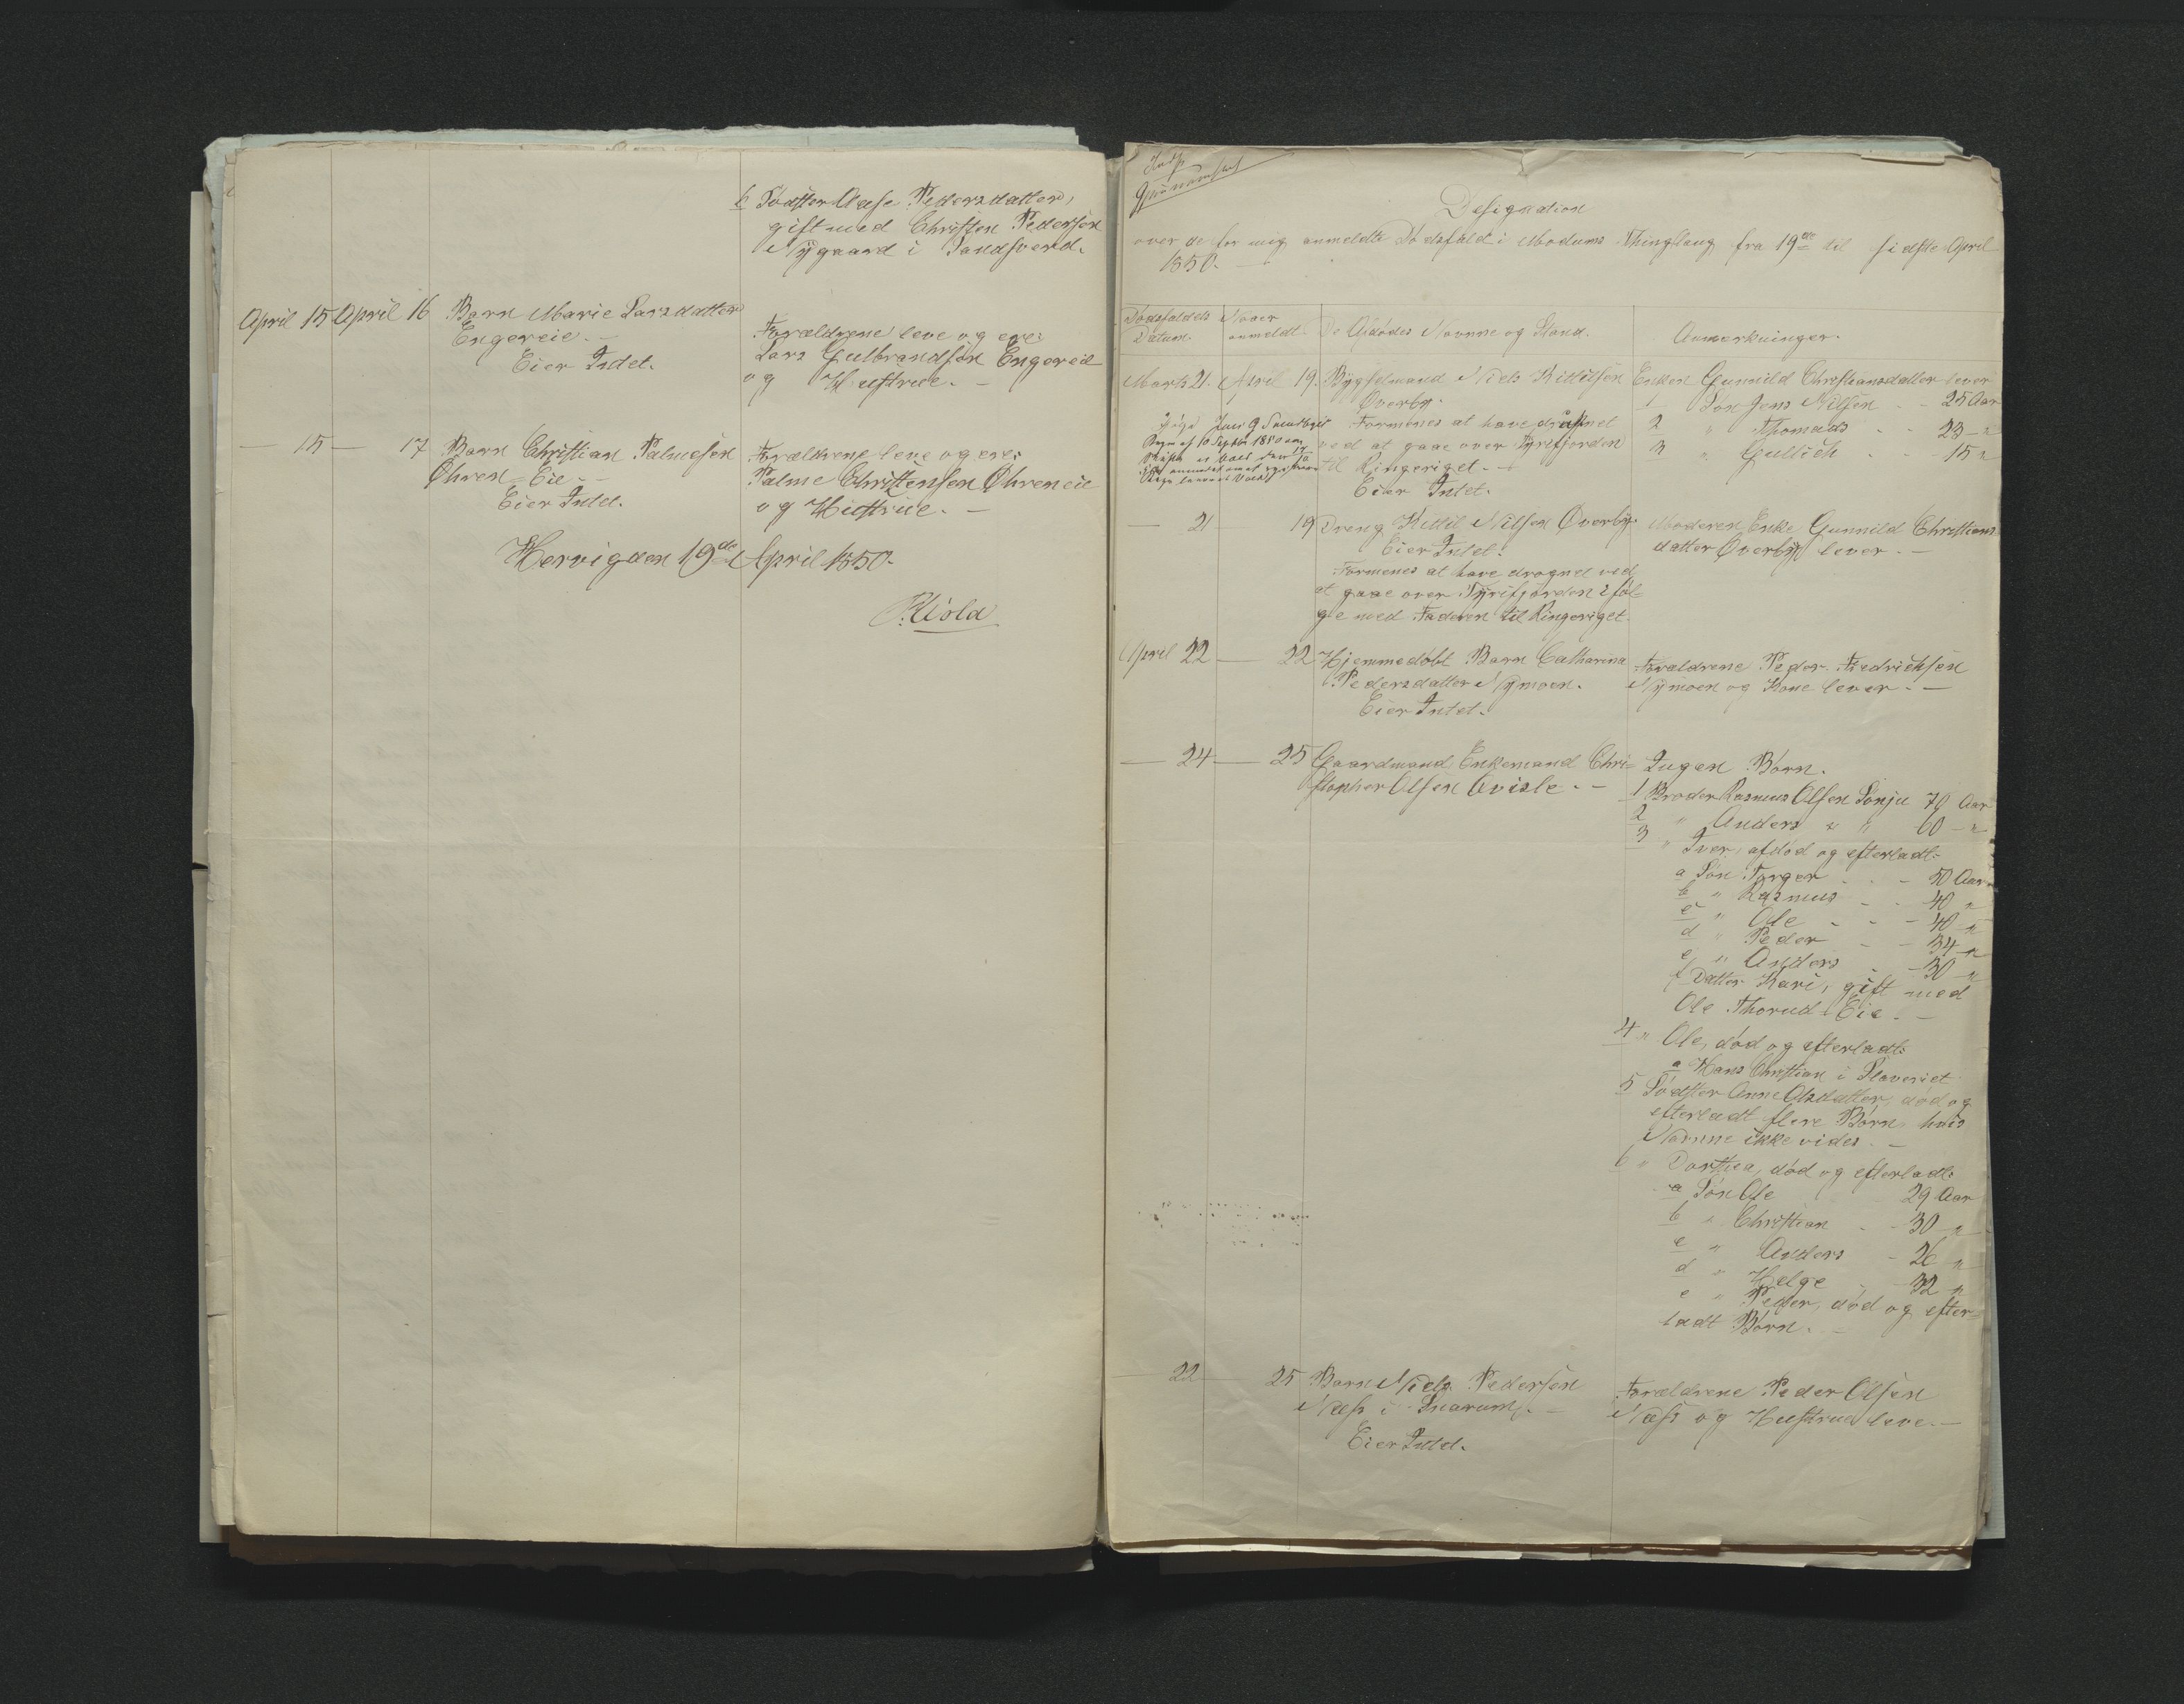 6 Södster Aase Pedersdatter,
gift med Christen Pedersen
Nygaard i Sandsverd.
April 15 April 16 Barn Marie Larsdatter
Engereie. -
Eier Intet.
Forældrene leve og ere:
Lars Gulbrandsen Engereie
og Hustrue. -
— 15 — 17 Barn Christian Palmesen
Øhren-Eie. -
Eier Intet.
Forældrene leve og ere:
Palme Christensen Øhreneie
og Hustrue. -
Hervig den 19de April 1850.
Designation
over de for mig anmeldte Dødsfald i Modums Thinglaug fra 19de til sidste April
1850. —
Dødsfaldets
Datum.
Naar
anmeldt
De Afdødes Navne og Stand.
Anmerkninger.
Marts 21. April 19. Bygselmand Niels Kittilsen
Øverby.
Formenes at have druknet
ved at gaae over Tyrifjorden
til Ringeriget. -
Eier Intet.
Enken Gunnild Christiansdatter lever
1 Søn Jens Nilsen - - 25 Aar
2 " Thomads - - 23 - "
3 " Gullich - - 15 "
— 21 19 Dreng Kittil Nilsen Øverby.
Eier Intet.
Formenes at have drognet ved
at gaae over Tyrifjorden i føl-
ge med Faderen til Ringeriget.
Moderen Enke Gunnild Christians-
datter Øverby lever. -
April 22 — 22 Hjemmedøbt Barn Catharina
Pedersdatter Nymoen.
Eier Intet.
Forældrene Peder Fredrichsen
Nymoen og Kone lever. -
— 24 — 25 Gaardmand Enkemand Chri-
stopher Olsen Qvisle. -
Ingen Børn.
1 Broder Rasmus Olsen Sønju 70 Aar
2 " Anders " " 60 - "
3 " Iver, afdød og efterladt:
a Søn Torger - - 50 Aar
b " Rasmus - - 40 "
c " Ole - - 40 "
d " Peder - - 34 "
e " Anders - 30 "
f Datter Kari, gift med
Ole Thorud-Eie. -
4 " Ole, død og efterladt:
a Hans Christian i Slaveriet
5 Södster Anne Olsdatter, død og
efterladt flere Børn, hvis
Navnne ikke vides. -
6 " Dorthea, død og efterladt:
a Søn Ole 29 Aar
b " Christian - - 30 "
c " Anders - 26 "
d " Helge - 32 "
e " Peder, død og efter-
ladt Børn. -
— 22 — 25 Barn Niels Pedersen
Næss i Snarum. -
Eier Intet.
Forældrene Peder Olsen
Næss og Hustrue leve. -